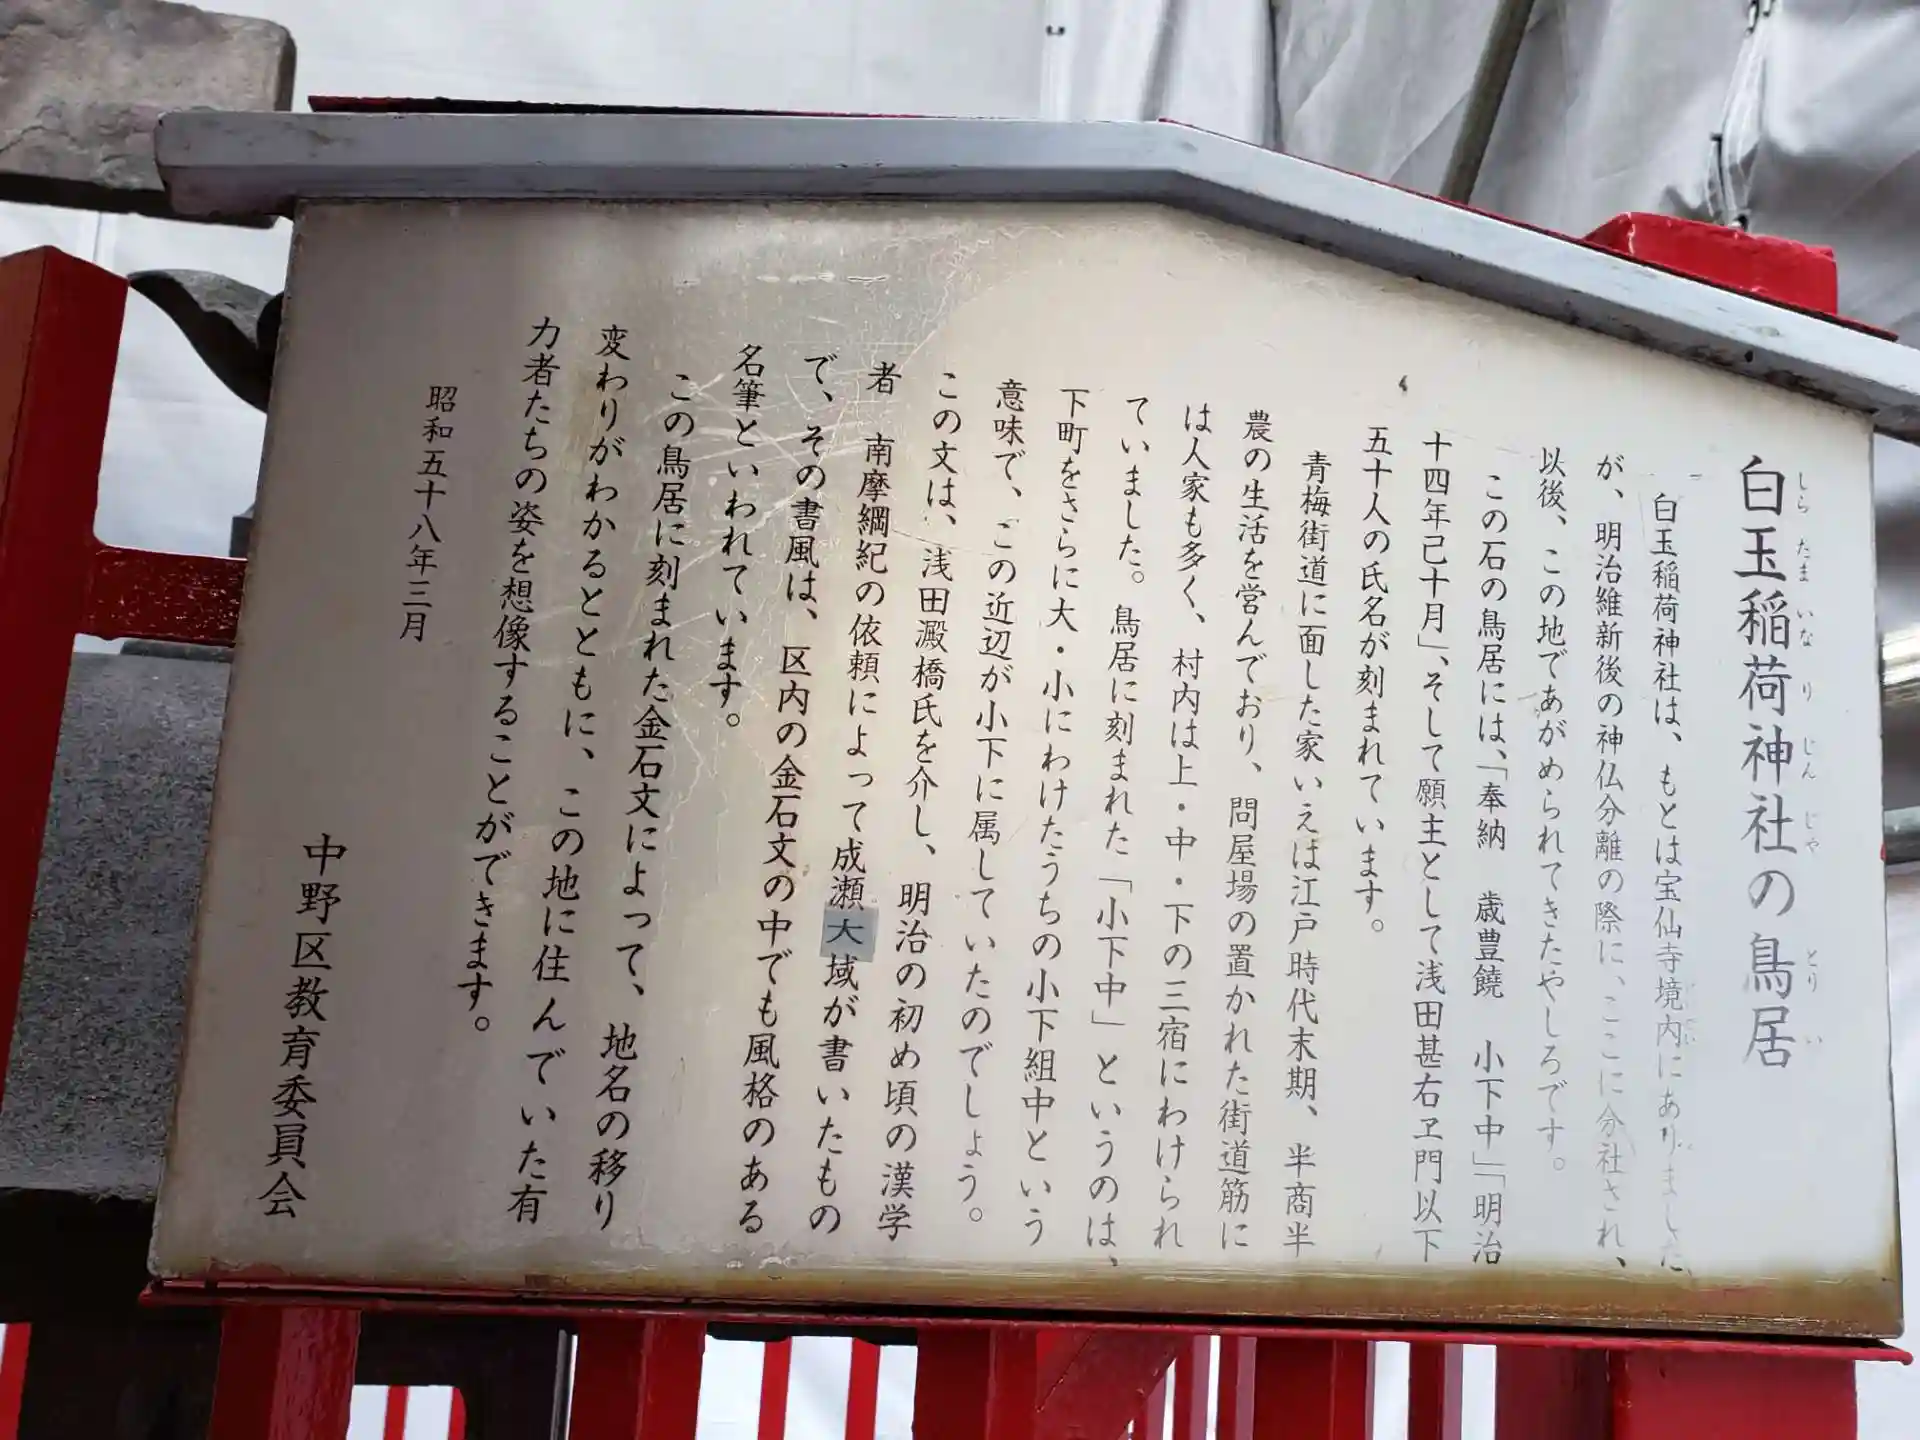 白玉稲荷神社の鳥居
しらたまいなりじんじゃのとりい
白玉稲荷神社は、もとは宝仙寺境内にありました
が、明治維新後の神仏分離の際に、ここに分社され、
以後、この地であがめられてきたやしろです。
この石の鳥居には、「奉納　歳豊饒　小下中」「明治
十四年己十月」、そして願主として浅田甚右ヱ門以下
五十人の氏名が刻まれています。
青梅街道に面した家いえは江戸時代末期、半商半
農の生活を営んでおり、問屋場の置かれた街道筋に
は人家も多く、村内は上・中・下の三宿にわけられ
ていました。鳥居に刻まれた「小下中」というのは、
下町をさらに大・小にわけたうちの小下組中という
意味で、この近辺が小下に属していたのでしょう。
この文は、浅田澱橋氏を介し、明治の初め頃の漢学
者　南摩綱紀の依頼によって成瀬大域が書いたもの
で、その書風は、区内の金石文の中でも風格のある
名筆といわれています。
この鳥居に刻まれた金石文によって、地名の移り
変わりがわかるとともに、この地に住んでいた有
力者たちの姿を想像することができます。
昭和五十八年三月
中野区教育委員会